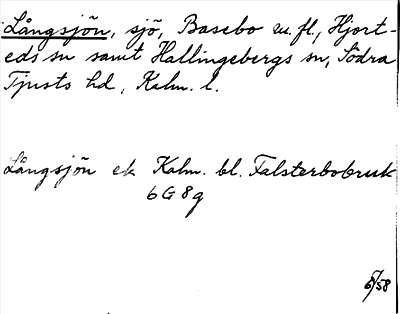 Långsjön, sjö, Basebo m. fl., Hjort-
eds sn samt Hallingebergs sn, Södra
Tjusts hd, Kalm. l.
Långsjön ek Kalm. bl. Falsterbobruk
6G 8g
6/58